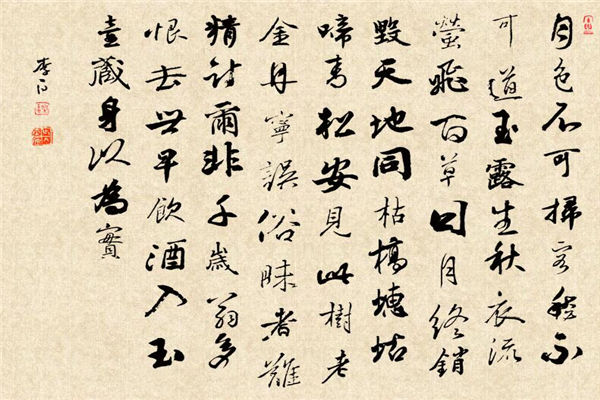 月色不可掃客愁不
可道玉露生秋衣流
螢飛百草日月終銷
毀天地同枯槁蟪蛄
啼青松安見此樹老
金丹寧誤俗昧者難
精討爾非千歲翁多
恨去世早飲酒入玉
壺藏身以為寶
李白